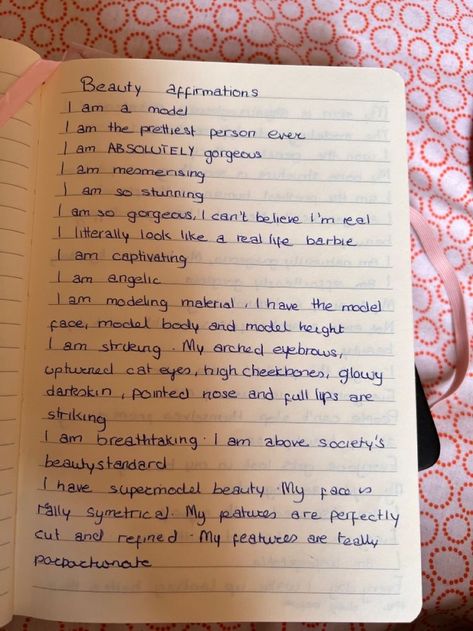 Beauty affirmations
I am a model
I am the prettiest person ever
I am ABSOLUTELY gorgeous
I am mesmerising
I am so stunning
I am so gorgeous, I can't believe I'm real
I litterally look like a real life barbie
I am captivating
I am angelic
I am modeling material, I have the model
face, model body and model height
I am striking. My arched eyebrows,
upturned cat eyes, high cheekbones, glowy
darkskin, pointed nose and full lips are
striking
I am breathtaking. I am above society's
beautystandard
I have supermodel beauty. My face is
really symetrical. My features are perfectly
cut and refined. My features are really